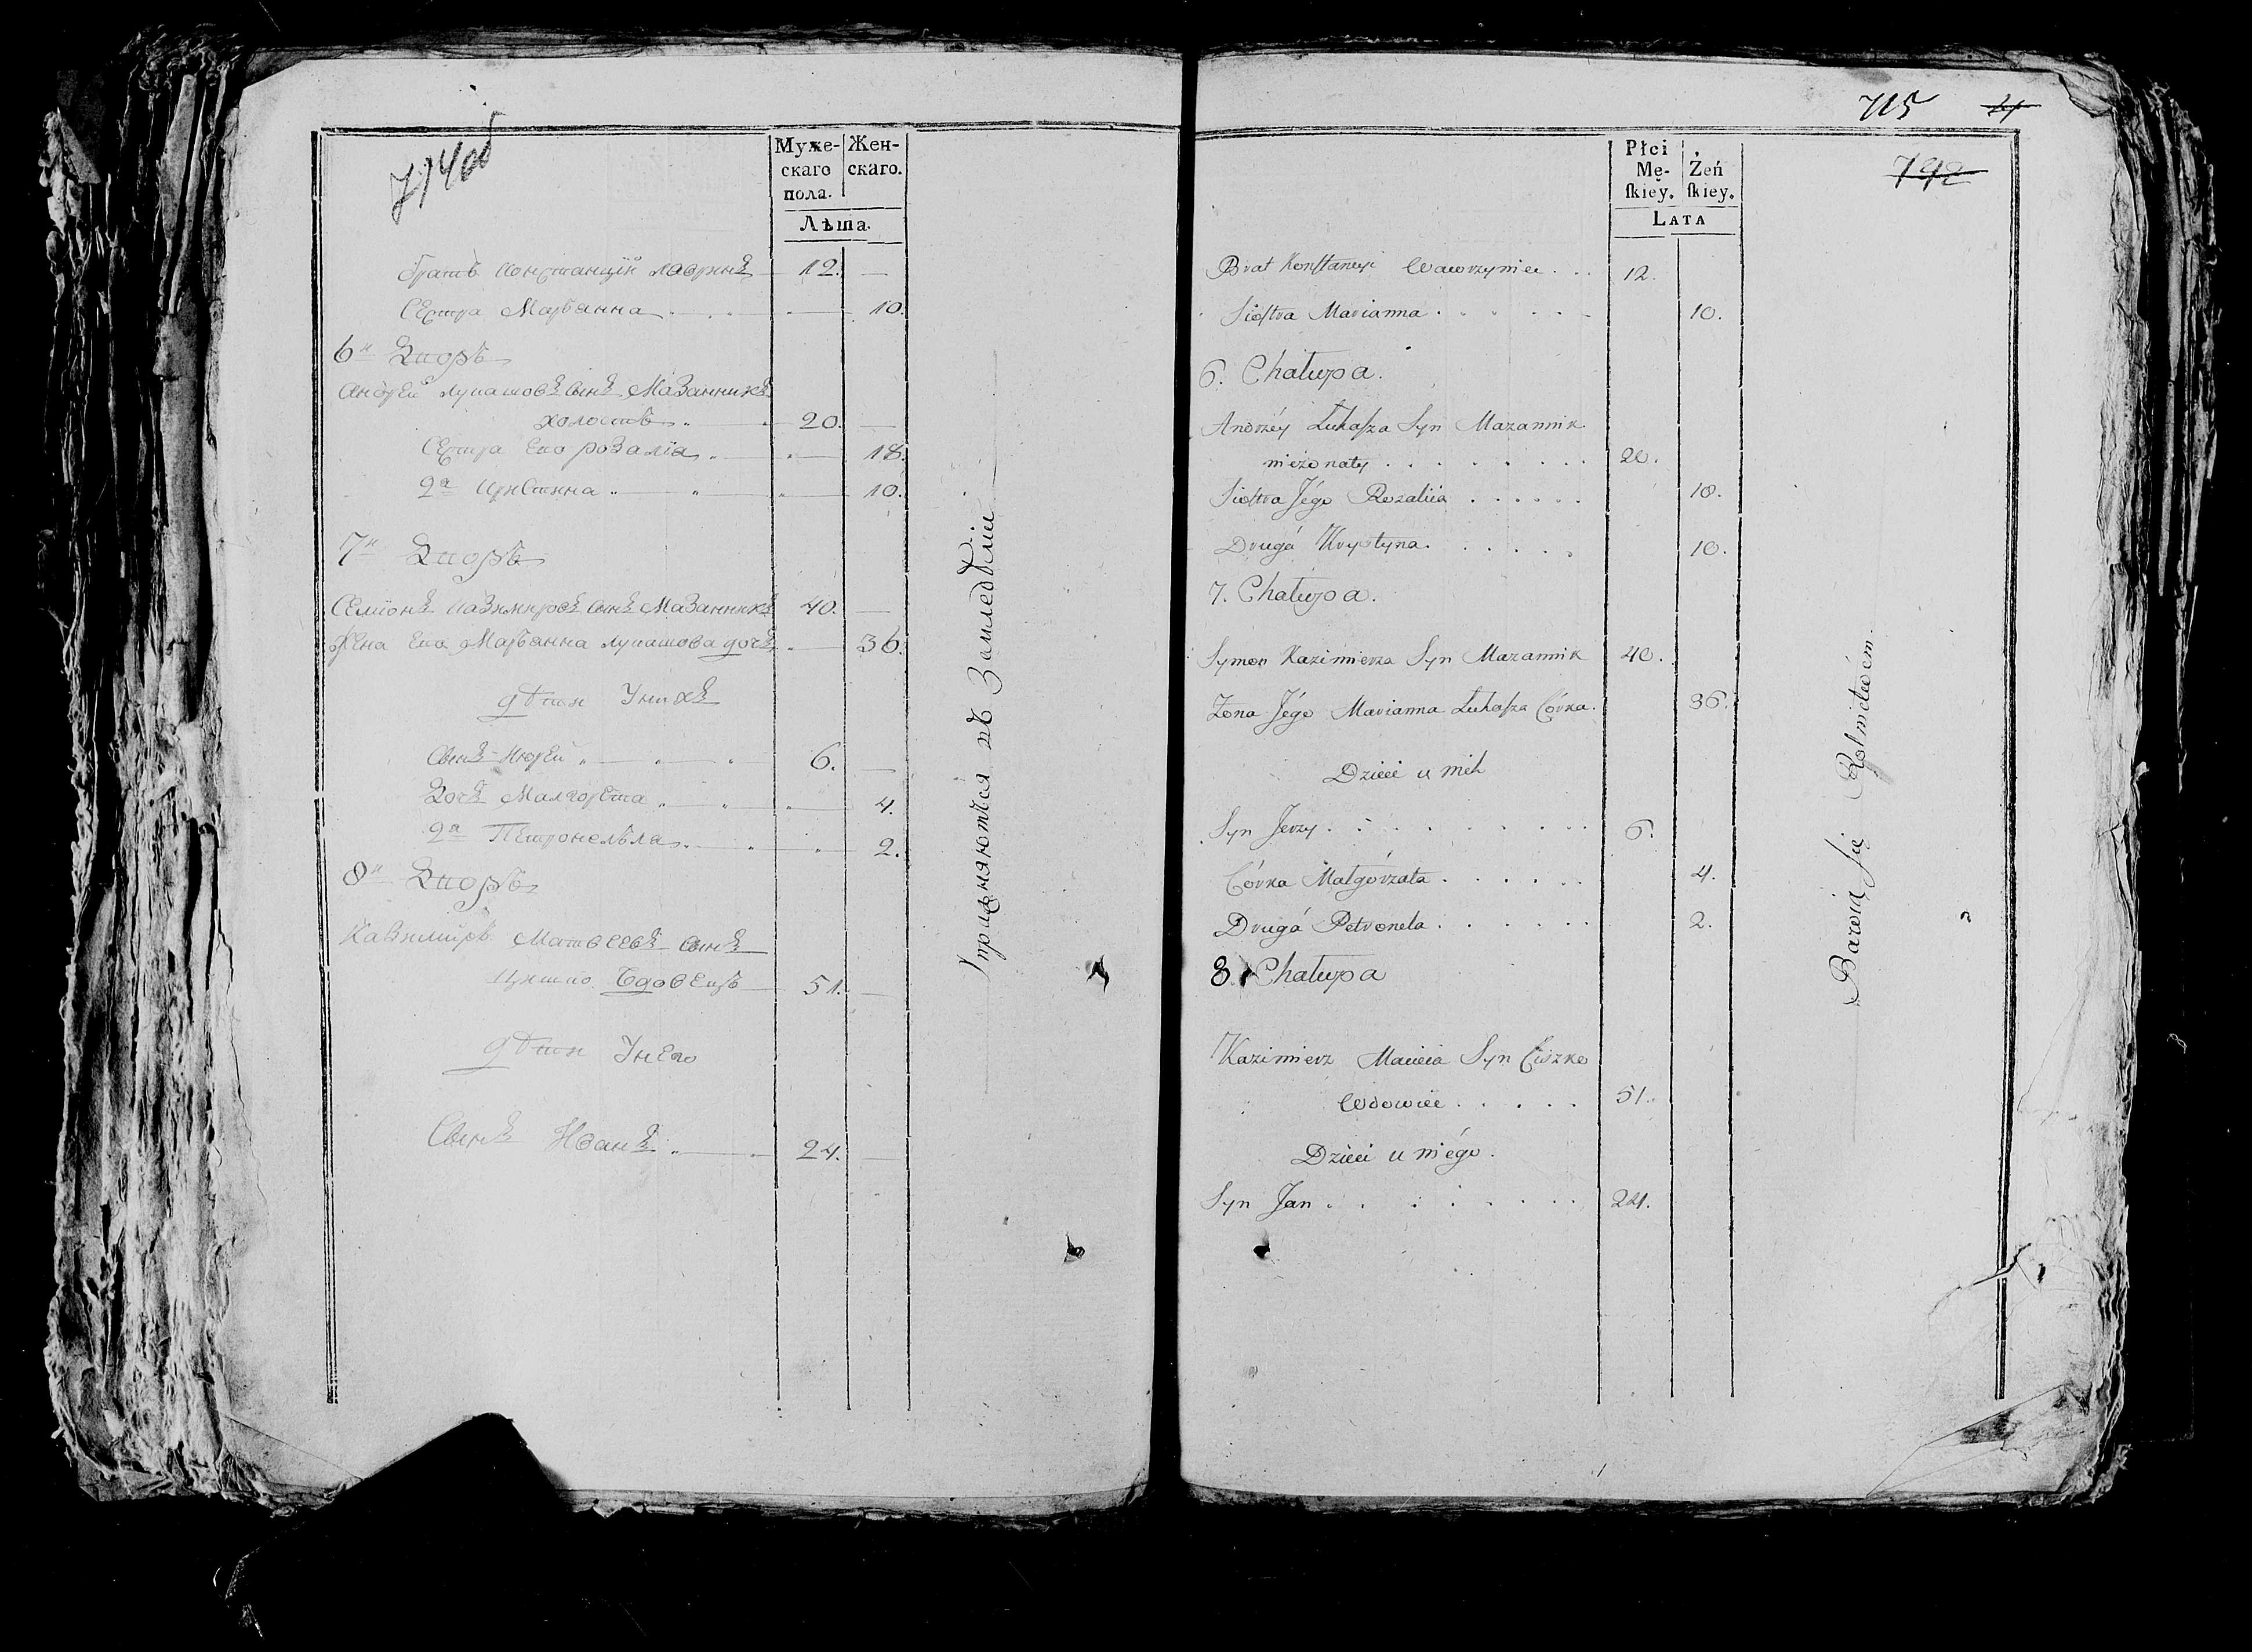 714об
Муже-
скаго
пола.
Жен-
скаго.
Лѣта.
братъ Констанцiй Лавринъ 12.
Сестра Марьанна 10.
6й Дворъ
Андрей Лукашовъ сынъ Мазанникъ
холостъ 20.
Сестра Его Розалiа 18.
2я Кристина 10.
7й Дворъ
Семiонъ Казимировъ сынъ Мазанникъ 40.
Жена Его Марьанна Лукашова дочь 36.
Дѣти у нихъ
Сынъ Юрей 6.
Дочь Малгорета 4.
2я Петронелѣла 2.
8й Дворъ
Казимиръ Матвеевъ сынъ
Цишко вдовецъ 51.
Дѣти у него
Сынъ Иванъ 24.
715
Płci
Mę-
skiey.
Żeń
skiey.
LATA
Brat Konstancyi Wawrzyniec 12.
Siostra Marianna 10.
6. Chałupa.
Andrzéy Łukasza Syn Mazannik
nieżonaty 20.
Siostra Jégo Rozaliia 18.
Drugá Krystyna 10.
7. Chałupa.
Symon Kazimierza Syn Mazannik 40.
Żona Jégo Marianna Łukasza Córka. 36.
Dzieci u nich
Syn Jerzy 6.
Córka Małgórzata 4.
Drugá Petronela 2.
8. Chałupa
Kazimierz Macieia Syn Ciszko
Wdowiec 51.
Dzieci u niégo.
Syn Jan 24.
Bawią się Rolnictwém.